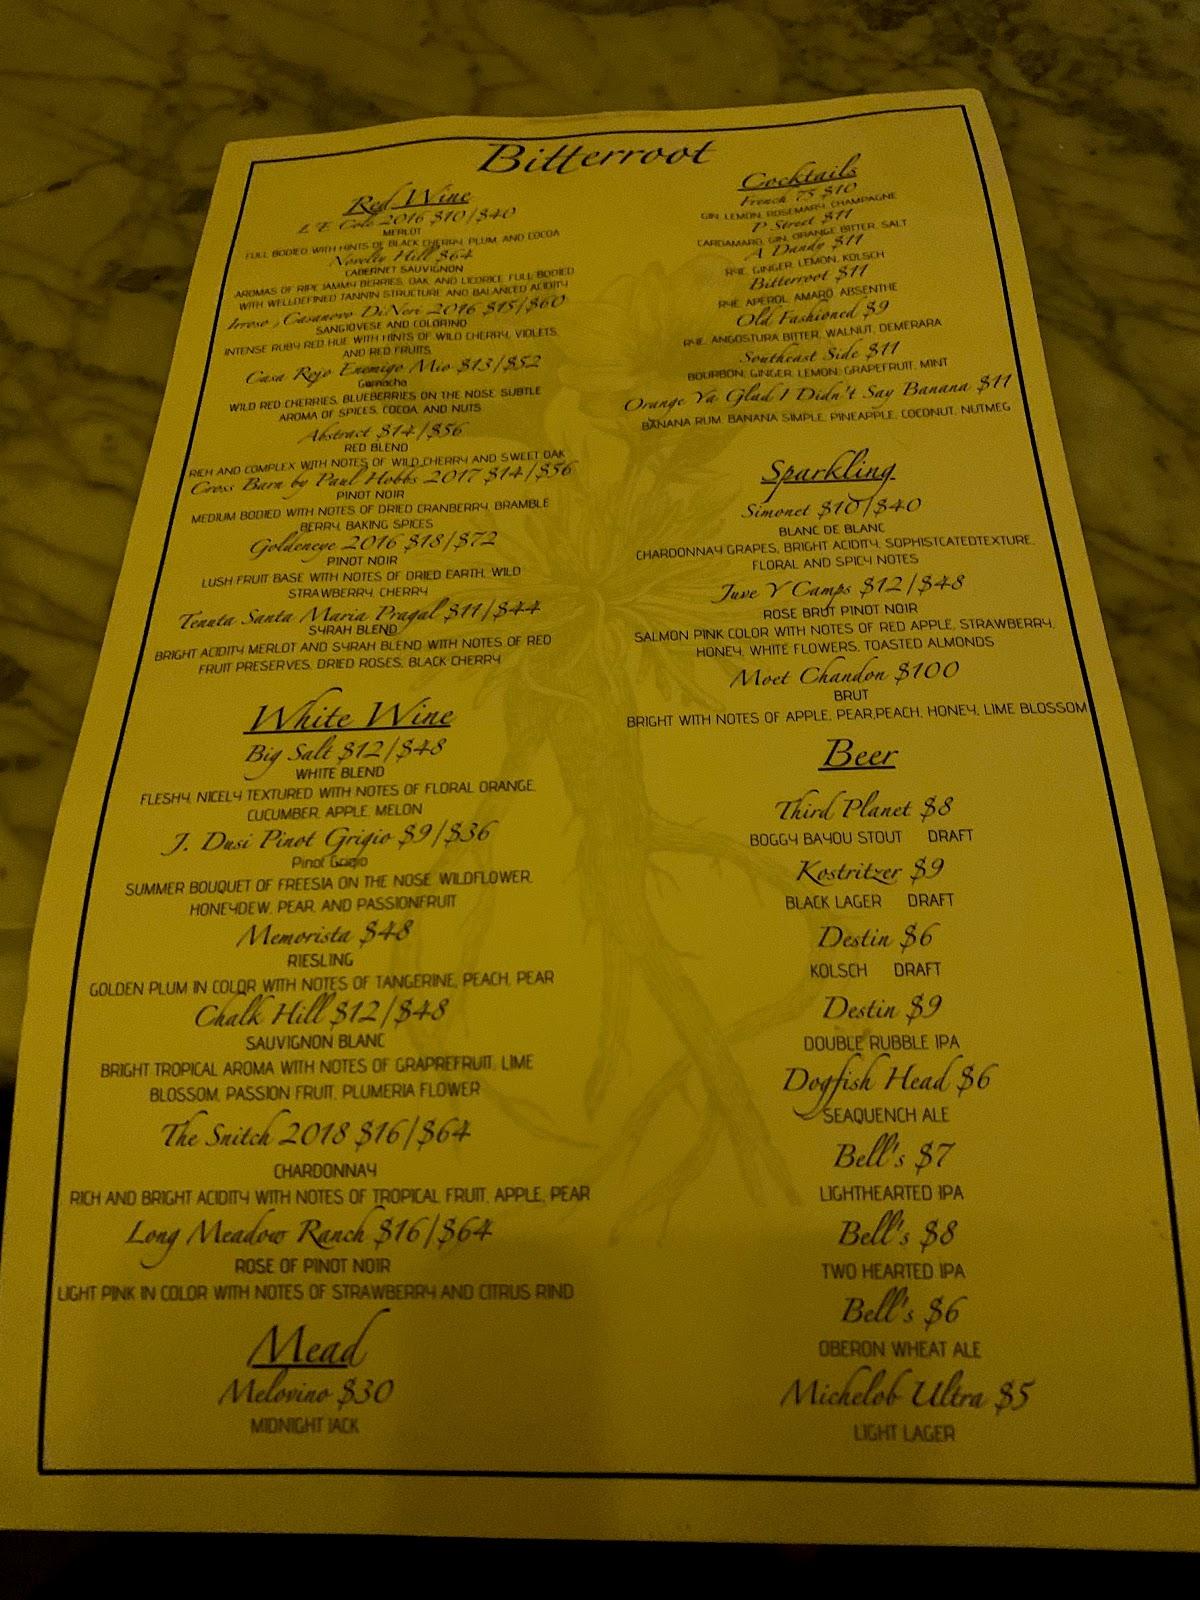 Bitterroot
Red Wine
L. E. Cole 2016 $10/$40
MERLOT
FULL BODIED WITH HINTS OF BLACK CHERRY, PLUM, AND COCOA
Novelty Hill $64
CABERNET SAUVIGNON
AROMAS OF RIPE JAMMY BERRIES, OAK, AND LICORICE FULL BODIED
WITH WELLDEFINED TANNIN STRUCTURE AND BALANCED ACIDITY
Irroso, Casanovo DiNeri 2016 $15/$60
SANGIOVESE AND COLORINO
INTENSE RUBY RED HUE WITH HINTS OF WILD CHERRY, VIOLETS,
AND RED FRUITS
Casa Rojo Enemigo Mio $13/$52
Garnacha
WILD RED CHERRIES, BLUEBERRIES ON THE NOSE SUBTLE
AROMA OF SPICES, COCOA AND NUTS
Abstract $14/$56
RED BLEND
RICH AND COMPLEX WITH NOTES OF WILD CHERRY AND SWEET OAK
Cross Barn by Paul Hobbs 2017 $14/$56
PINOT NOIR
MEDIUM BODIED WITH NOTES OF DRIED CRANBERRY, BRAMBLE
BERRY, BAKING SPICES
Goldeneye 2016 $18/$72
PINOT NOIR
LUSH FRUIT BASE WITH NOTES OF DRIED EARTH, WILD
STRAWBERRY, CHERRY
Tenuta Santa Maria Pragal $11/$44
SYRAH BLEND
BRIGHT ACIDITY MERLOT AND SYRAH BLEND WITH NOTES OF RED
FRUIT PRESERVES, DRIED ROSES, BLACK CHERRY
White Wine
Big Salt $12/$48
WHITE BLEND
FLESHY, NICELY TEXTURED WITH NOTES OF FLORAL ORANGE,
CUCUMBER, APPLE, MELON
J. Dusi Pinot Grigio $9/$36
Pinot Grigio
SUMMER BOUQUET OF FREESIA ON THE NOSE WILDFLOWER,
HONEYDEW, PEAR, AND PASSIONFRUIT
Memorista $48
RIESLING
GOLDEN PLUM IN COLOR WITH NOTES OF TANGERINE, PEACH, PEAR
Chalk Hill $12/$48
SAUVIGNON BLANC
BRIGHT TROPICAL AROMA WITH NOTES OF GRAPREFRUIT, LIME
BLOSSOM, PASSION FRUIT, PLUMERIA FLOWER
The Snitch 2018 $16/$64
CHARDONNAY
RICH AND BRIGHT ACIDITY WITH NOTES OF TROPICAL FRUIT, APPLE, PEAR
Long Meadow Ranch $16/$64
ROSE OF PINOT NOIR
LIGHT PINK IN COLOR WITH NOTES OF STRAWBERRY AND CITRUS RIND
Mead
Melovino $30
MIDNIGHT JACK
Cocktails
French 75 $10
GIN, LEMON, ROSEMARY, CHAMPAGNE
P Street $11
CARDAMARO, GIN, ORANGE BITTER, SALT
A Dandy $11
RYE, GINGER, LEMON, KOLSCH
Bitterroot $11
RYE, APEROL, AMARO, ABSENTHE
Old Fashioned $9
RYE, ANGOSTURA BITTER, WALNUT, DEMERARA
Southeast Side $11
BOURBON, GINGER, LEMON, GRAPEFRUIT, MINT
Orange Ya Glad I Didn't Say Banana $11
BANANA RUM, BANANA SIMPLE, PINEAPPLE, COCONUT, NUTMEG
Sparkling
Simonet $10/$40
BLANC DE BLANC
CHARDONNAY GRAPES, BRIGHT ACIDITY, SOPHISTCATEDTEXTURE,
FLORAL AND SPICY NOTES
Juve Y Camps $12/$48
ROSE BRUT PINOT NOIR
SALMON PINK COLOR WITH NOTES OF RED APPLE, STRAWBERRY,
HONEY, WHITE FLOWERS, TOASTED ALMONDS
Moet Chandon $100
BRUT
BRIGHT WITH NOTES OF APPLE, PEAR,PEACH, HONEY, LIME BLOSSOM
Beer
Third Planet $8
BOGGY BAYOU STOUT DRAFT
Kostritzer $9
BLACK LAGER DRAFT
Destin $6
KOLSCH DRAFT
Destin $9
DOUBLE RUBBLE IPA
Dogfish Head $6
SEAQUENCH ALE
Bell's $7
LIGHTHEARTED IPA
Bell's $8
TWO HEARTED IPA
Bell's $6
OBERON WHEAT ALE
Michelob Ultra $5
LIGHT LAGER